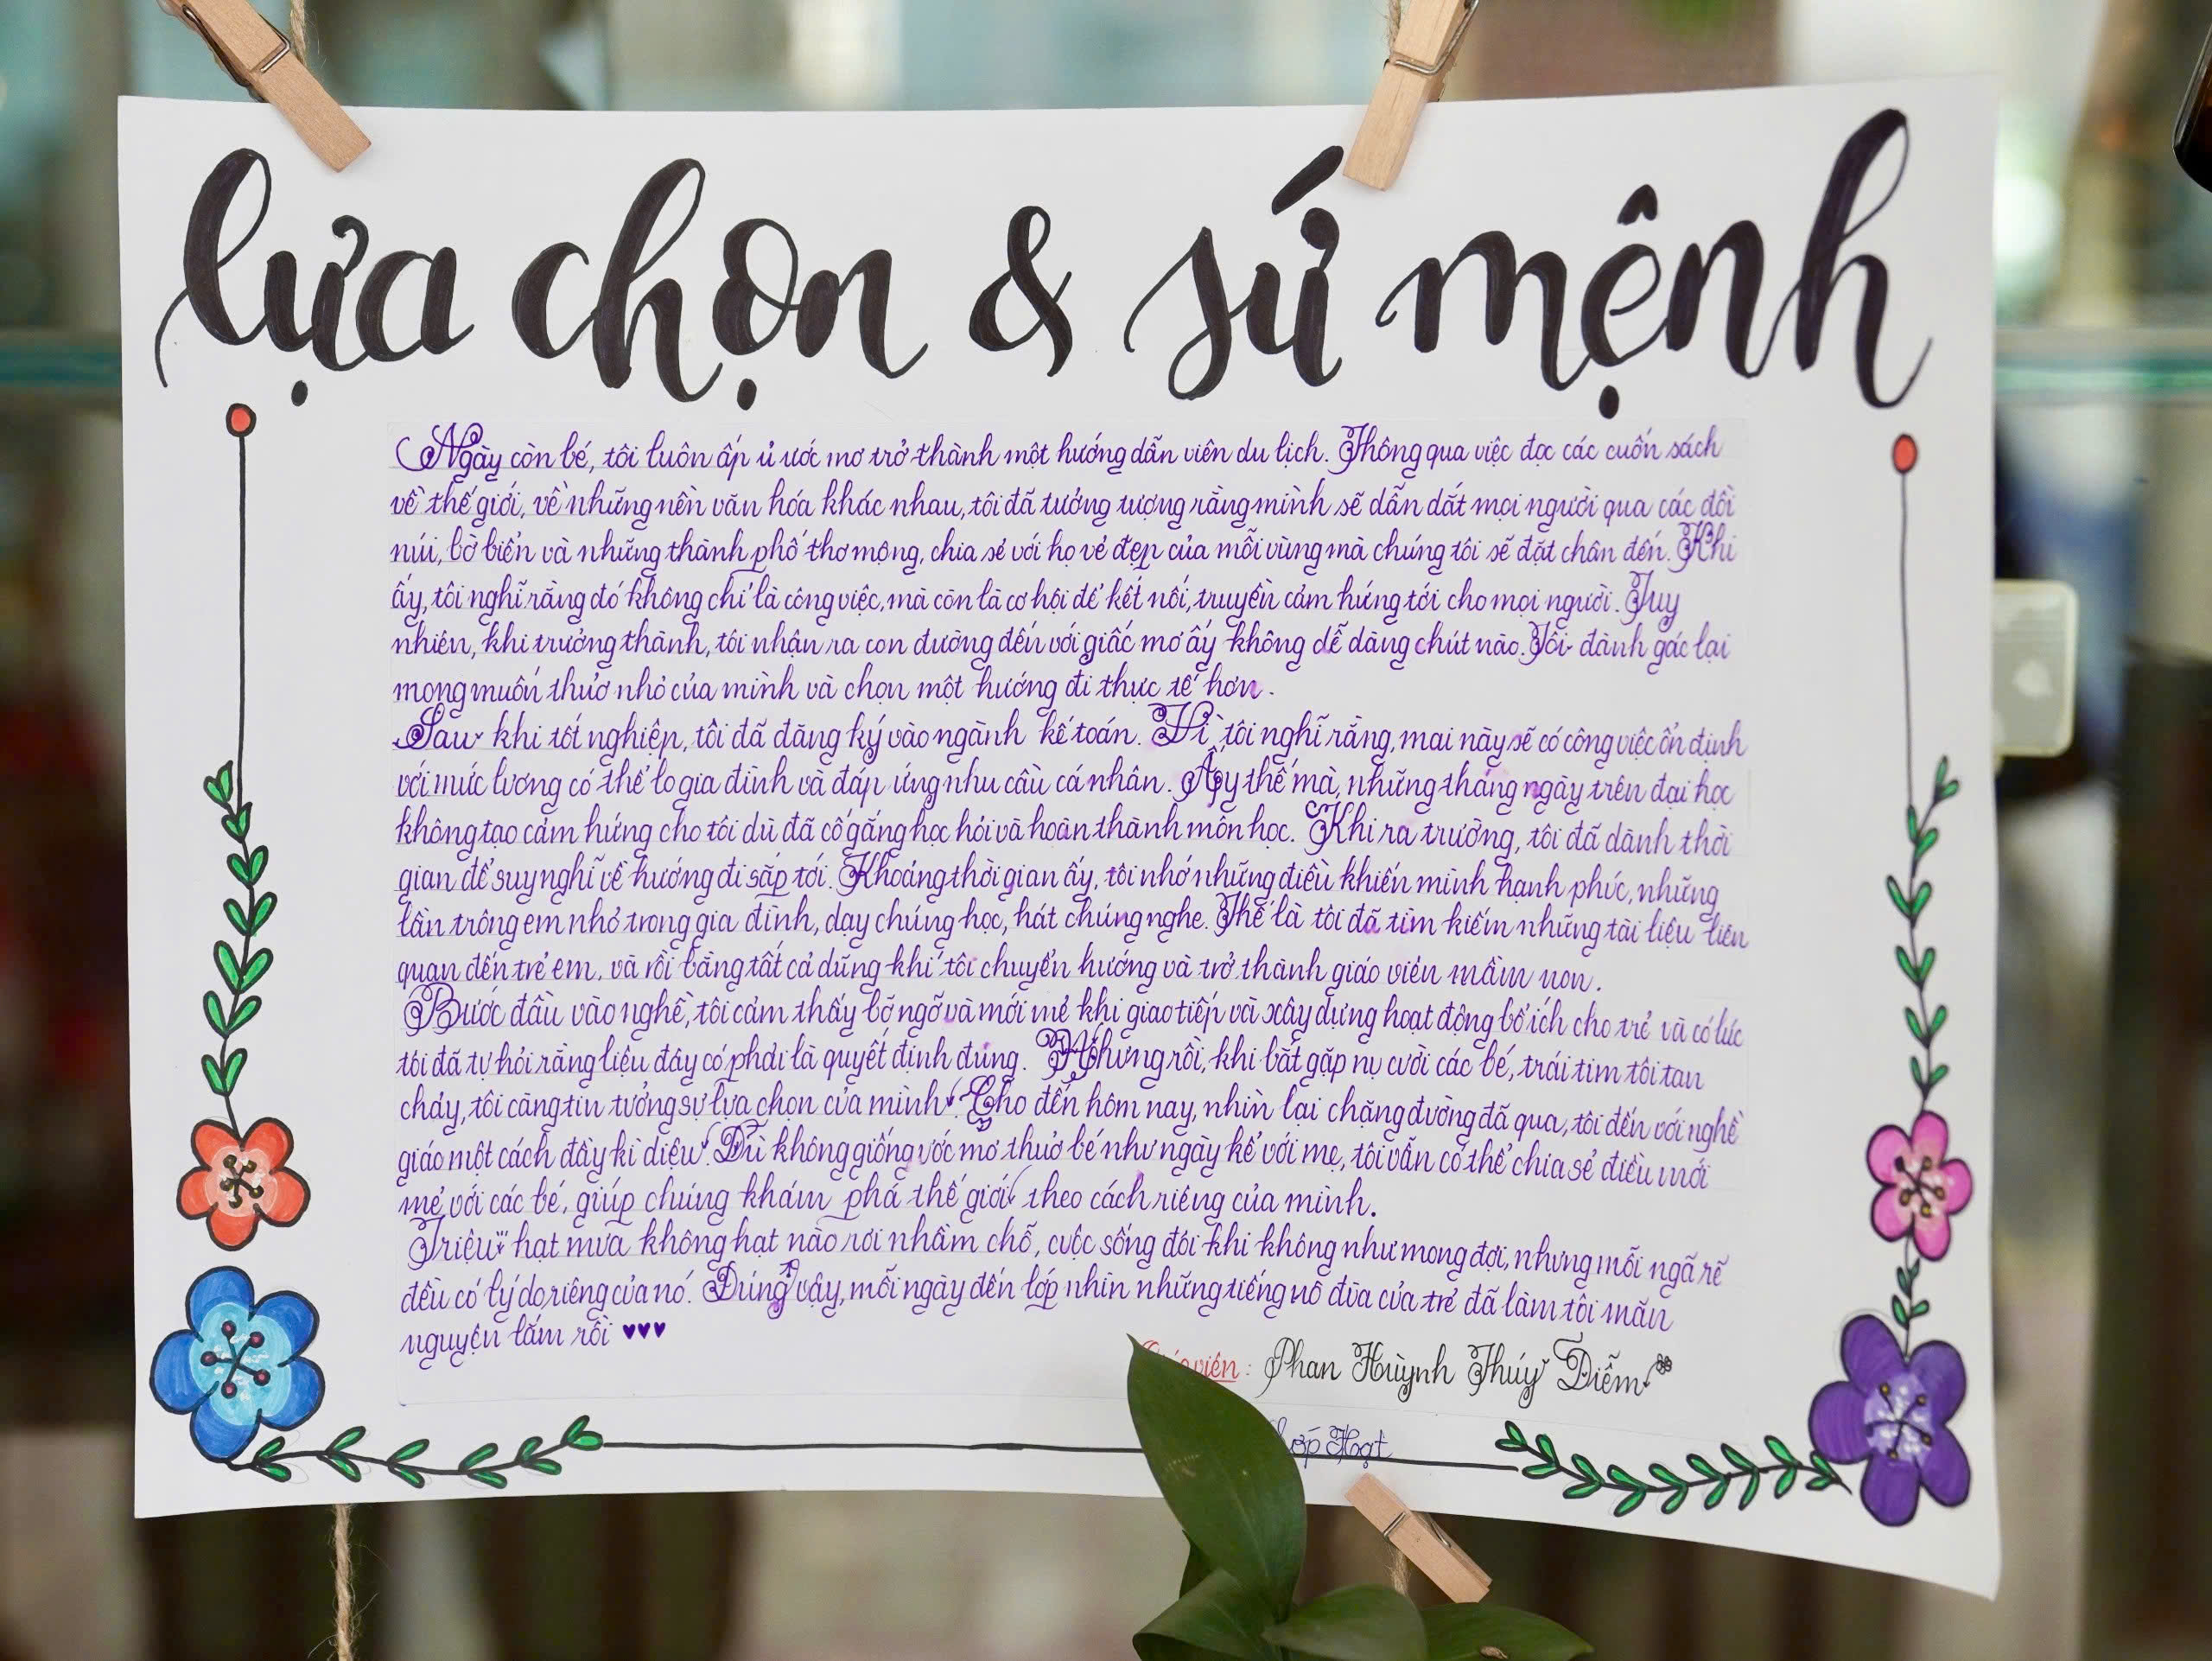 lựa chọn & sứ mệnh
Ngày còn bé, tôi luôn ấp ủ ước mơ trở thành một hướng dẫn viên du lịch. Thông qua việc đọc các cuốn sách
về thế giới, về những nền văn hóa khác nhau, tôi đã tưởng tượng rằng mình sẽ dẫn dắt mọi người qua các đồi
núi, bờ biển và những thành phố thơ mộng, chia sẻ với họ vẻ đẹp của mỗi vùng mà chúng tôi sẽ đặt chân đến. Khi
ấy, tôi nghĩ rằng đó không chỉ là công việc, mà còn là cơ hội để kết nối, truyền cảm hứng tới cho mọi người. Tuy
nhiên, khi trưởng thành, tôi nhận ra con đường đến với giấc mơ ấy không dễ dàng chút nào. Tôi đành gác lại
mong muốn thuở nhỏ của mình và chọn một hướng đi thực tế hơn.
Sau khi tốt nghiệp, tôi đã đăng ký vào ngành kế toán. Vì tôi nghĩ rằng, mai này sẽ có công việc ổn định
với mức lương có thể lo gia đình và đáp ứng nhu cầu cá nhân. Ấy thế mà, những tháng ngày trên đại học
không tạo cảm hứng cho tôi dù đã cố gắng học hỏi và hoàn thành môn học. Khi ra trường, tôi đã dành thời
gian để suy nghĩ về hướng đi sắp tới. Khoảng thời gian ấy, tôi nhớ những điều khiến mình hạnh phúc, những
lần trông em nhỏ trong gia đình, dạy chúng học, hát chúng nghe. Thế là tôi đã tìm kiếm những tài liệu liên
quan đến trẻ em, và rồi bằng tất cả dũng khí tôi chuyển hướng và trở thành giáo viên mầm non.
Bước đầu vào nghề, tôi cảm thấy bỡ ngỡ và mới mẻ khi giao tiếp và xây dựng hoạt động bổ ích cho trẻ và có lúc
tôi đã tự hỏi rằng liệu đây có phải là quyết định đúng. Nhưng rồi, khi bắt gặp nụ cười các bé, trái tim tôi tan
chảy, tôi càng tin tưởng sự lựa chọn của mình. Cho đến hôm nay, nhìn lại chặng đường đã qua, tôi đến với nghề
giáo một cách đầy kì diệu. Dù không giống ước mơ thuở bé như ngày kể với mẹ, tôi vẫn có thể chia sẻ điều mới
mẻ với các bé, giúp chúng khám phá thế giới theo cách riêng của mình.
Triệu hạt mưa không hạt nào rơi nhầm chỗ, cuộc sống đôi khi không như mong đợi, nhưng mỗi ngã rẽ
đều có lý do riêng của nó. Đúng vậy, mỗi ngày đến lớp nhìn những tiếng nô đùa của trẻ đã làm tôi mãn
nguyện lắm rồi ♥♥♥
Phan Huỳnh Thúy Diễm
Hạt